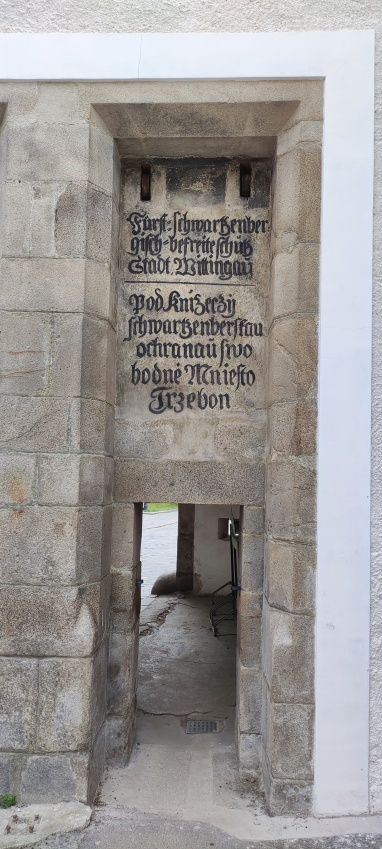 Fürst-schwartzenber
gisch-befreite schutz
Stadt Wittingau
pod Knižeczÿ
schwartzenberskau
ochranaū swo
bodné Mniesto
Trzebon